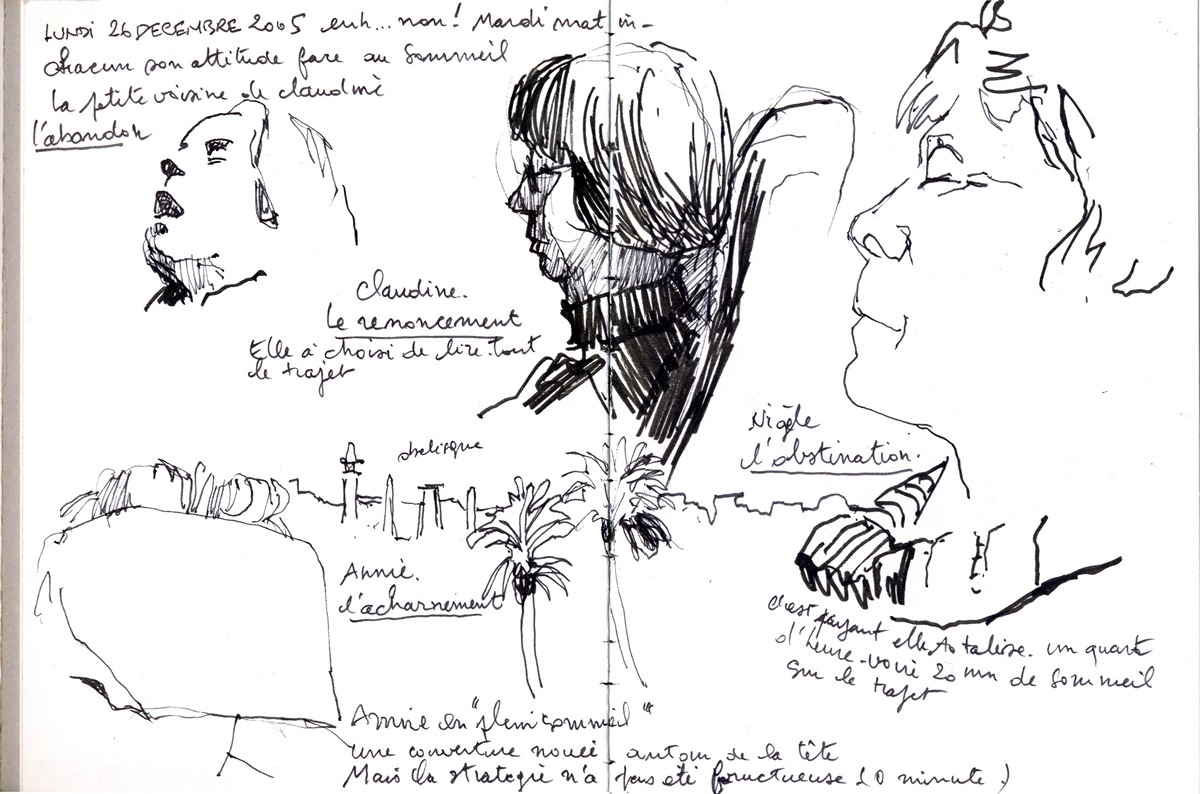 LUNDI 26 DECEMBRE 2005 euh... non! Mardi matin -
chacun son attitude face au sommeil
la petite voisine de claudine
l'abandon
Claudine.
Le renoncement
Elle a choisi de lire tout
le trajet
obelisque
Nigèle
l'obstination.
Annie.
l'acharnement
c'est payant elle totalise un quart
d'heure - voire 20 mn de sommeil
sur le trajet
Annie en "plein sommeil"
une couverture nouée autour de la tête
Mais la stratégie n'a pas été fructueuse (0 minute!)